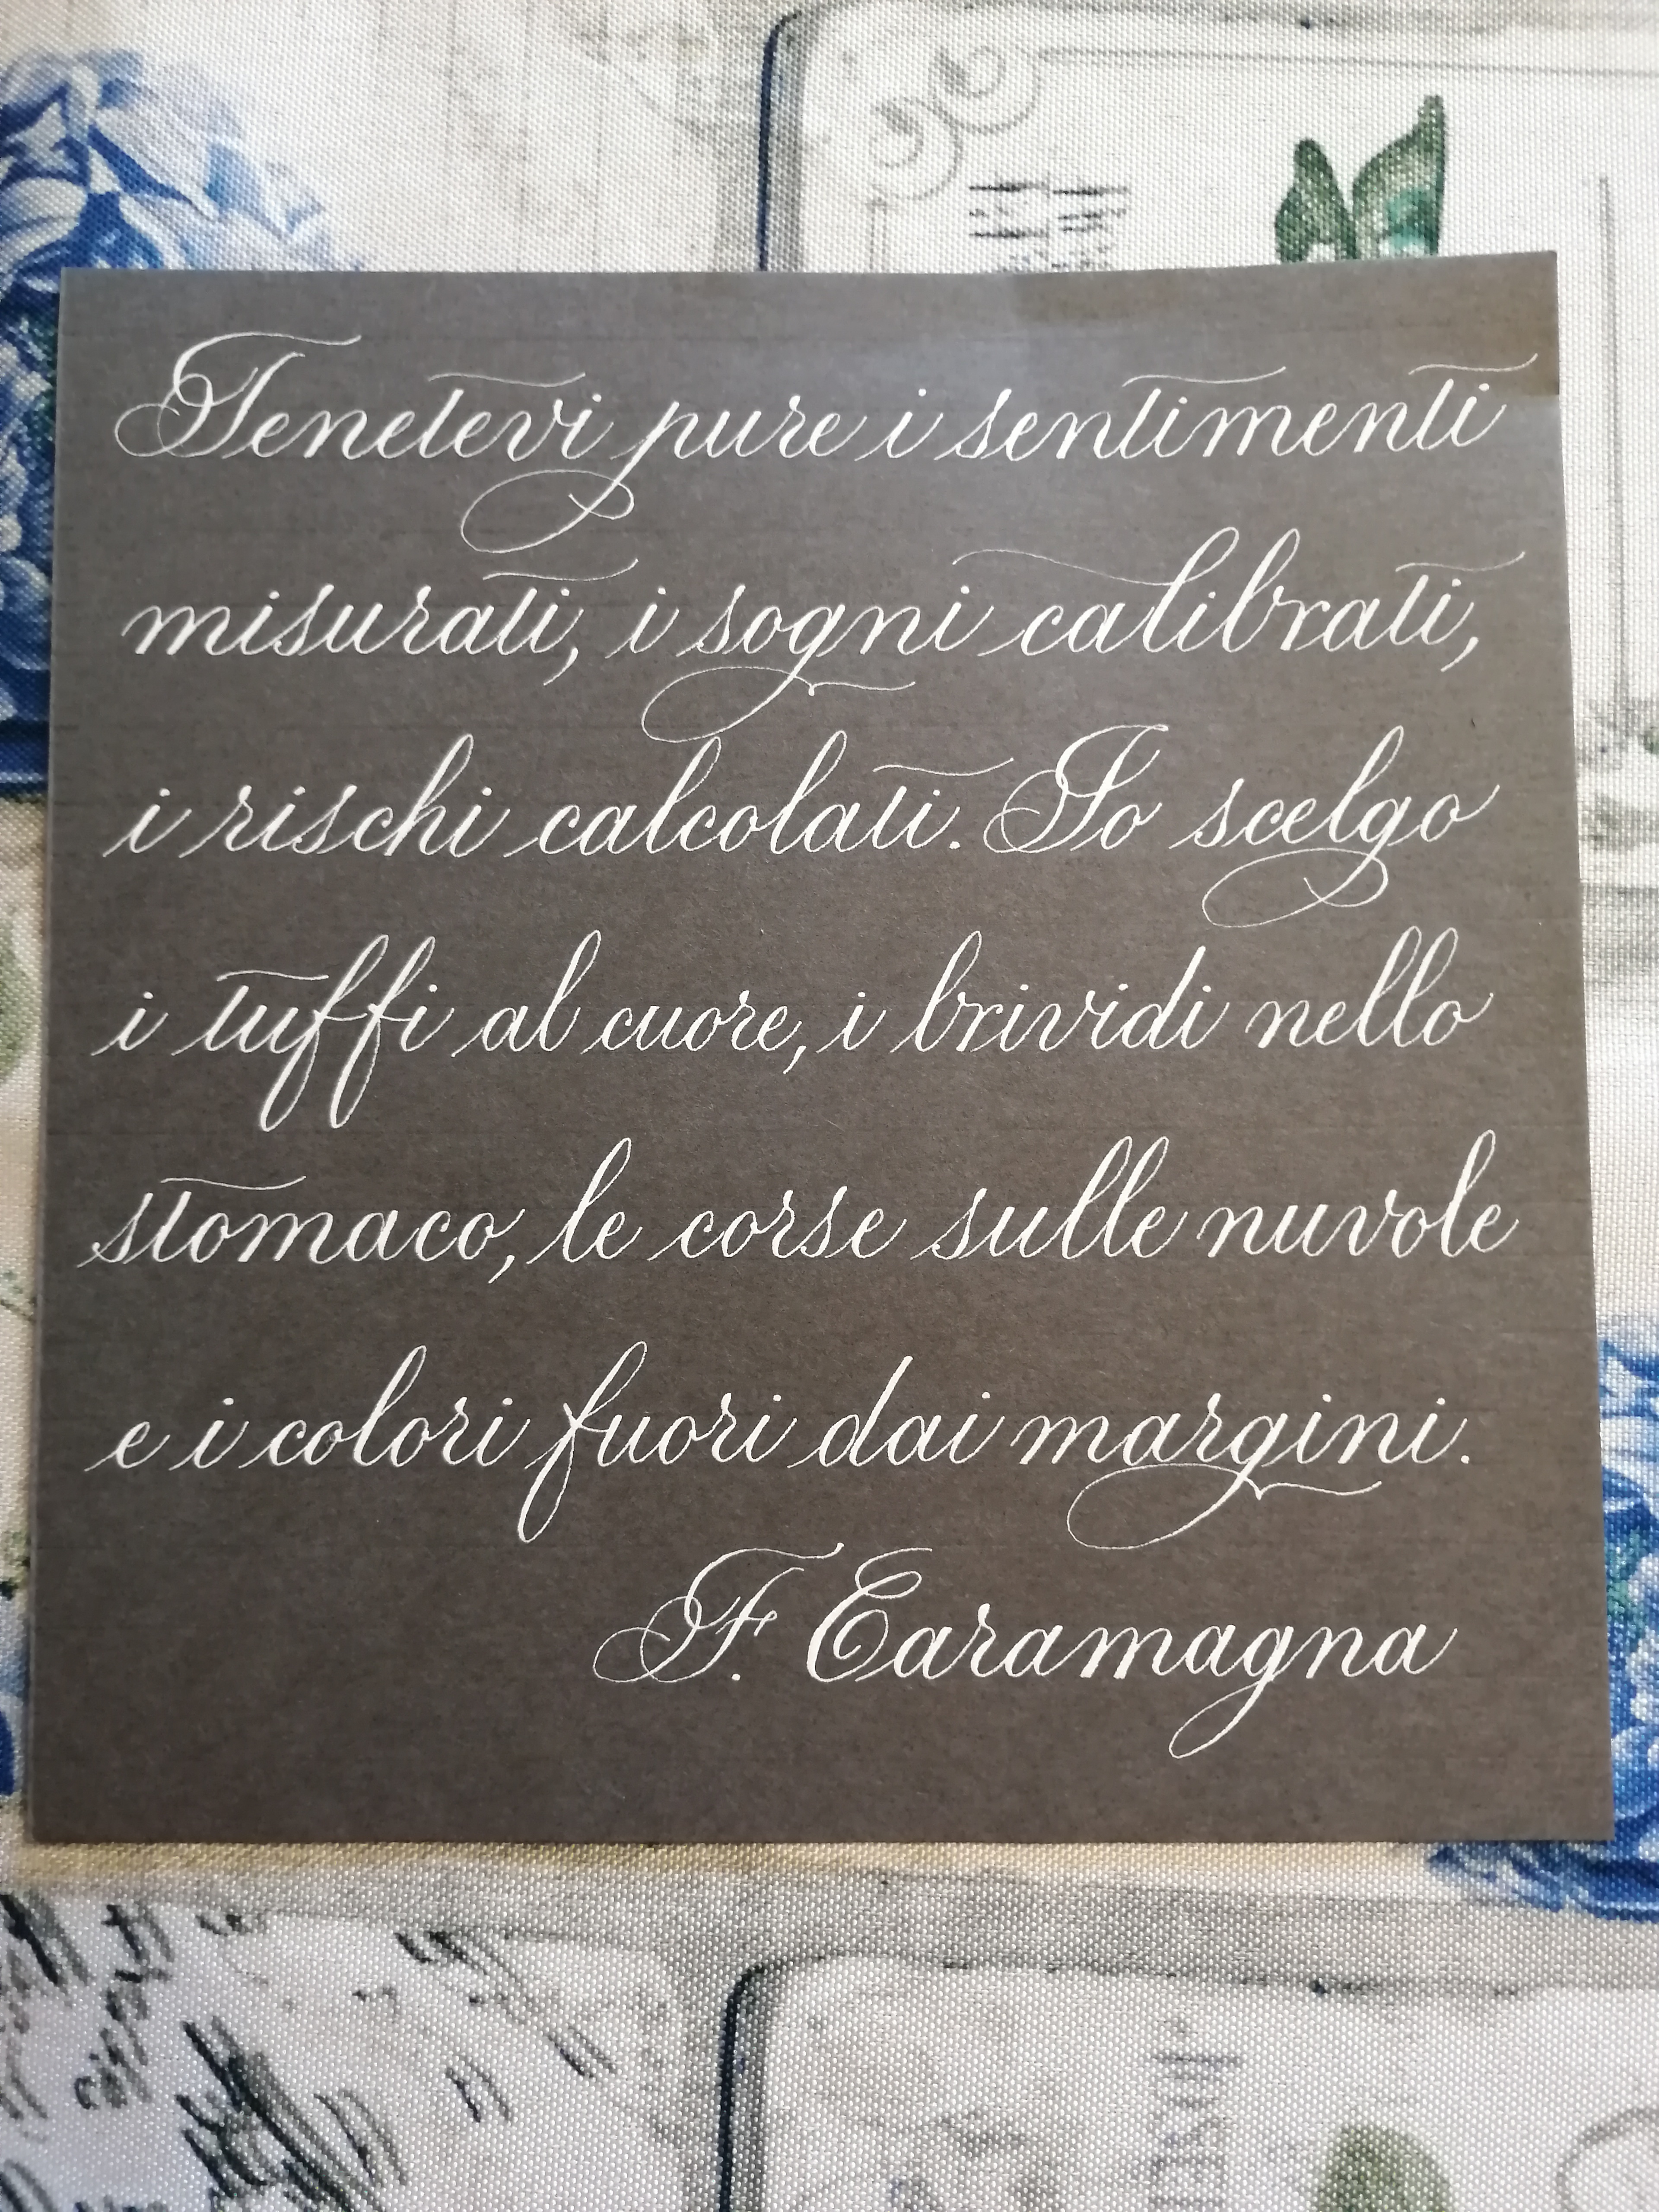 Tenetevi pure i sentimenti
misurati, i sogni calibrati,
i rischi calcolati. Io scelgo
i tuffi al cuore, i brividi nello
stomaco, le corse sulle nuvole
e i colori fuori dai margini.
F. Caramagna